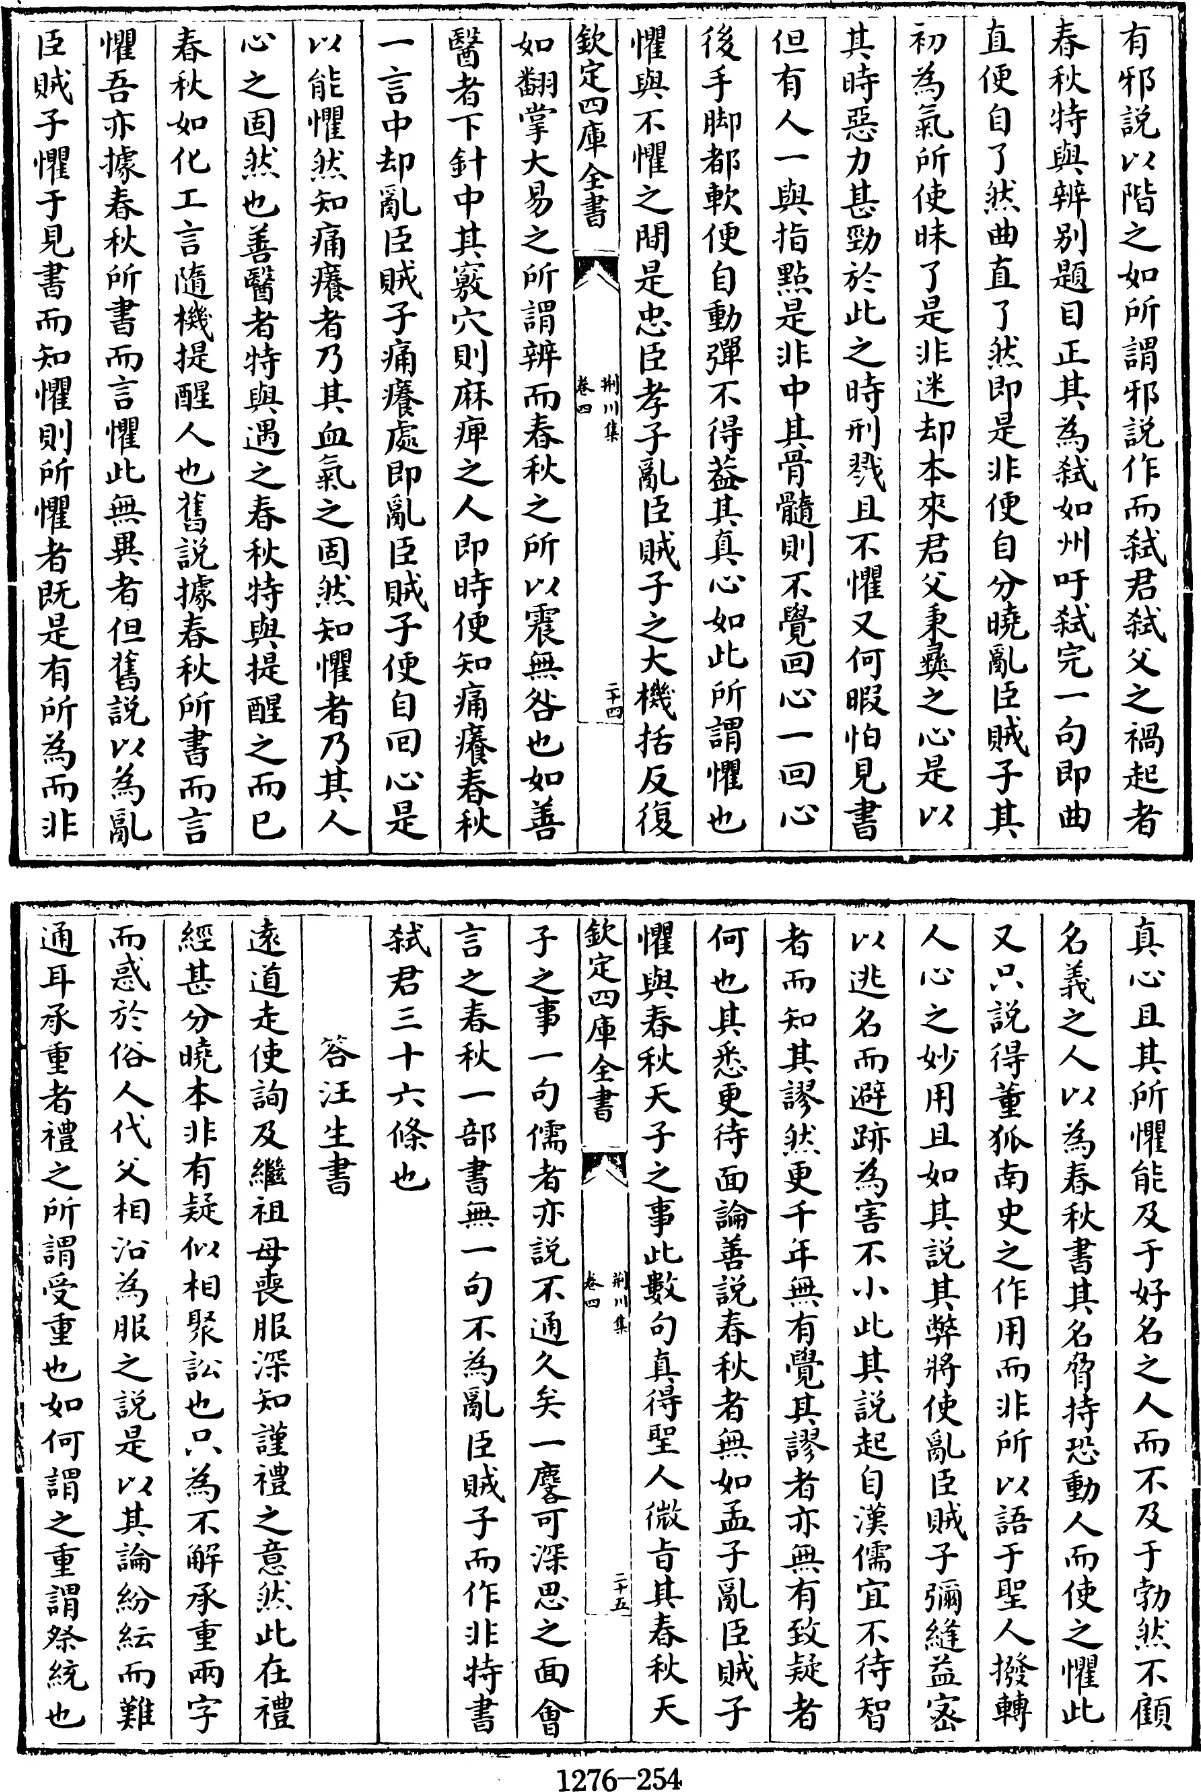 有邪説以階之如所謂邪説作而弑君弑父之禍起者
春秋特與辨别題目正其為弑如州吁弑完一句即曲
直便自了然曲直了然即是非便自分曉亂臣賊子其
初為氣所使昧了是非迷却本來君父秉彞之心是以
其時惡力甚勁於此之時刑戮且不懼又何暇怕見書
但有人一與指點是非中其骨髓則不覺回心一回心
後手脚都軟便自動彈不得葢其真心如此所謂懼也
懼與不懼之間是忠臣孝子亂臣賊子之大機括反復
欽定四庫全書
荆川集
卷四
二十四
如翻掌大易之所謂辨而春秋之所以震無咎也如善
醫者下針中其竅穴則麻痺之人即時便知痛癢春秋
一言中却亂臣賊子痛癢處即亂臣賊子便自回心是
以能懼然知痛癢者乃其血氣之固然知懼者乃其人
心之固然也善醫者特與遇之春秋特與提醒之而已
春秋如化工言隨機提醒人也舊説據春秋所書而言
懼吾亦據春秋所書而言懼此無異者但舊説以為亂
臣賊子懼于見書而知懼則所懼者既是有所為而非
真心且其所懼能及于好名之人而不及于勃然不顧
名義之人以為春秋書其名脅持恐動人而使之懼此
又只説得董狐南史之作用而非所以語于聖人撥轉
人心之妙用且如其説其弊將使亂臣賊子彌縫益宻
以逃名而避跡為害不小此其説起自漢儒宜不待智
者而知其謬然更千年無有覺其謬者亦無有致疑者
何也其悉更待面論善説春秋者無如孟子亂臣賊子
懼與春秋天子之事此數句真得聖人微㫖其春秋天
欽定四庫全書
荆川集
卷四
二十五
子之事一句儒者亦説不通久矣一麐可深思之面會
言之春秋一部書無一句不為亂臣賊子而作非特書
弑君三十六條也
答汪生書
遠道走使詢及繼祖母喪服深知謹禮之意然此在禮
經甚分曉本非有疑似相聚訟也只為不解承重兩字
而惑於俗人代父相沿為服之説是以其論紛紜而難
通耳承重者禮之所謂受重也如何謂之重謂祭統也
1276-254